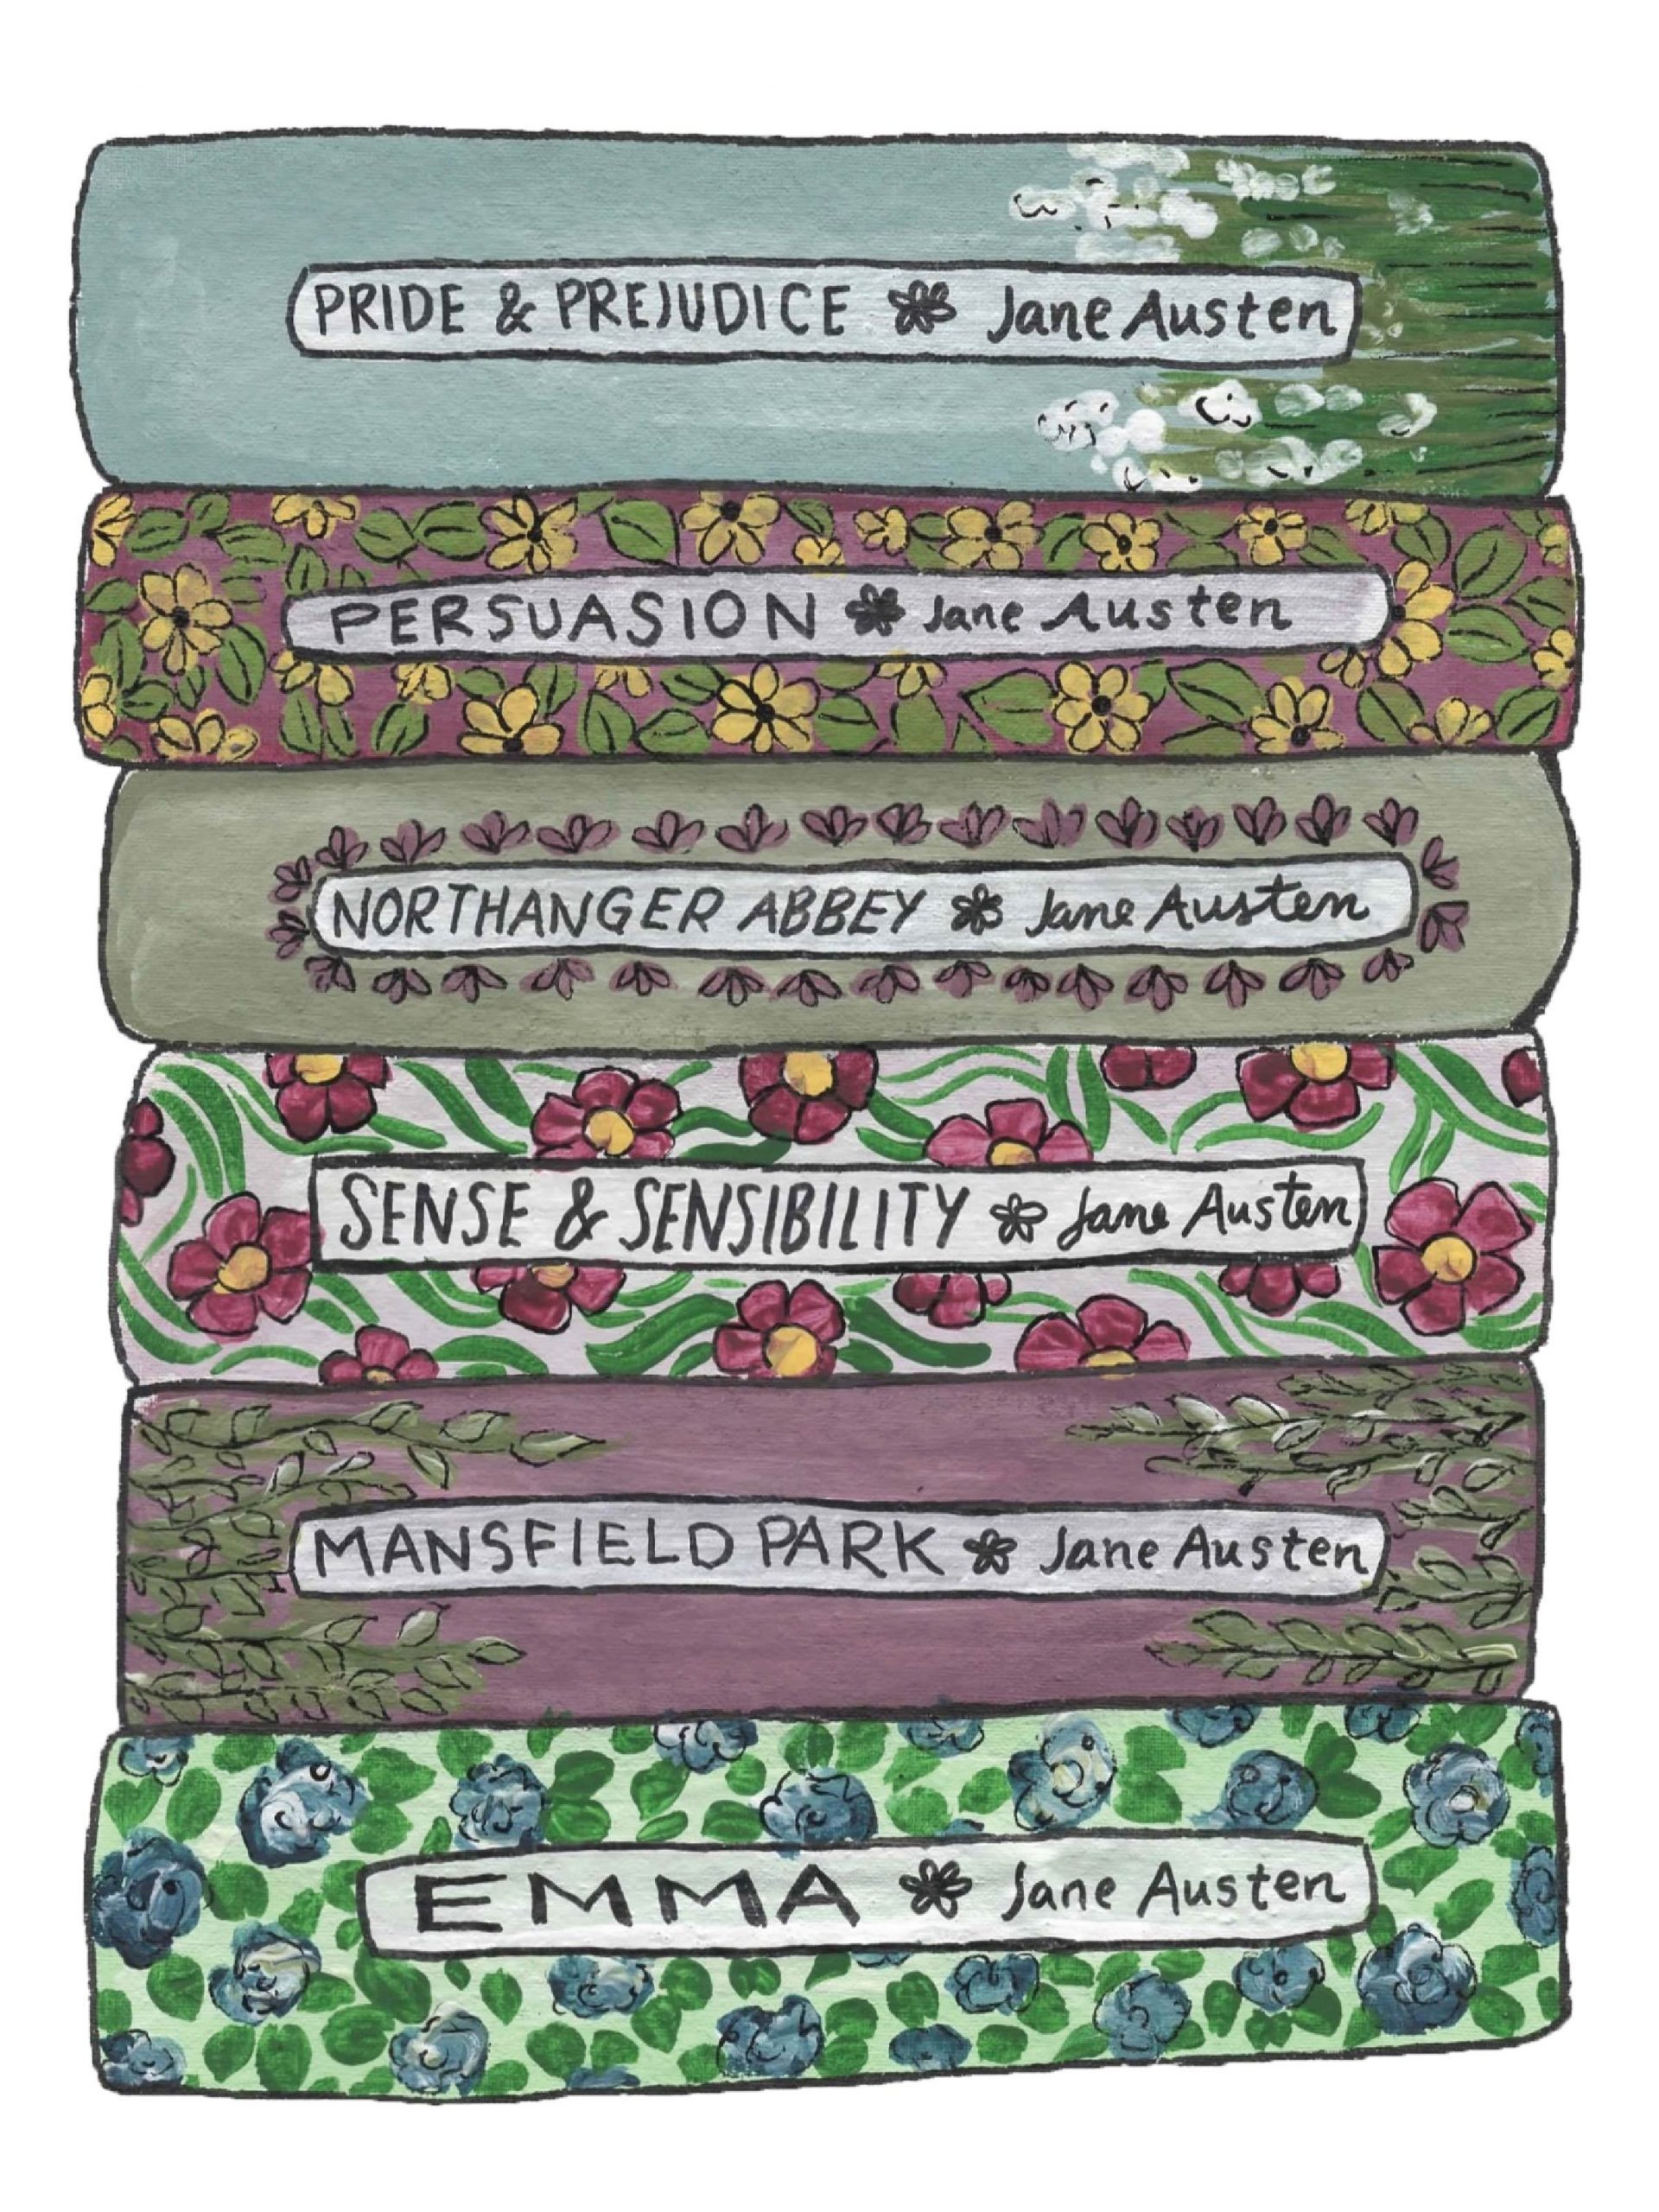 PRIDE & PREJUDICE Jane Austen
PERSUASION Jane Austen
NORTHANGER ABBEY Jane Austen
SENSE & SENSIBILITY Jane Austen
MANSFIELD PARK Jane Austen
EMMA Jane Austen